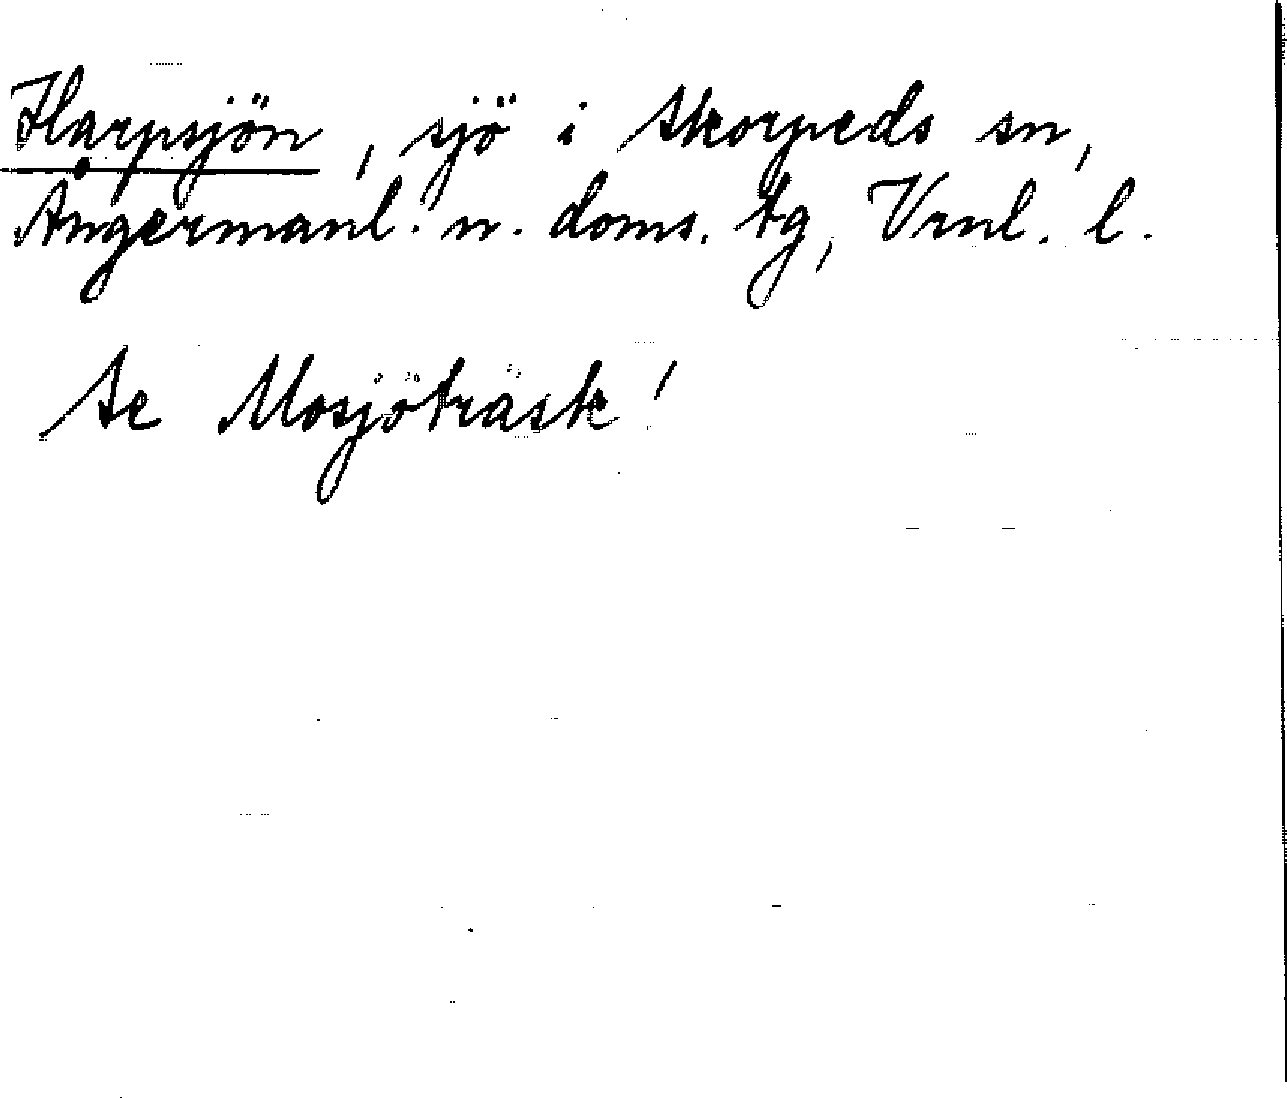 Harpsjön, sjö i Skorpeds sn,
Ångermanl. n. doms. tg, Vrnl. l.
Se Mosjöträsk!